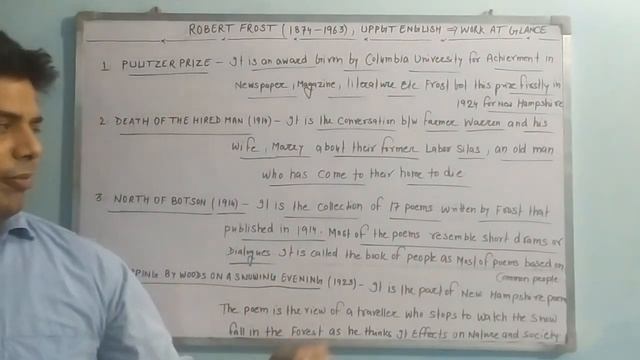 ROBERT FROST (1874-1963), UPPGT ENGLISH ⇒ WORK AT GLANCE
1 PULITZER PRIZE - It is an award Given by Columbia University for Achierment in
Newspaper, Magazine, literature etc Frost Got this prize firstly in
1924 for New Hampshire
2. DEATH OF THE HIRED MAN (1914) - It is the conversation b/w farmer Warren and his
Wife, Marry about their former Labor Silas, an old man
who has come to their home to die
3 NORTH OF BOTSON (1914) - It is the collection of 17 poems written by Frost that
published in 1914. Most of the poems resemble short drams or
Dialogues It is called the book of people as Most of poems based on
Common people
PPING BY WOODS ON A SNOWING EVENING (1923) - It is the part of New Hampshire poem
The poem is the view of a traveller who stops to watch the Snow
fall in the Forest as he thinks It Effects on Nature and Society